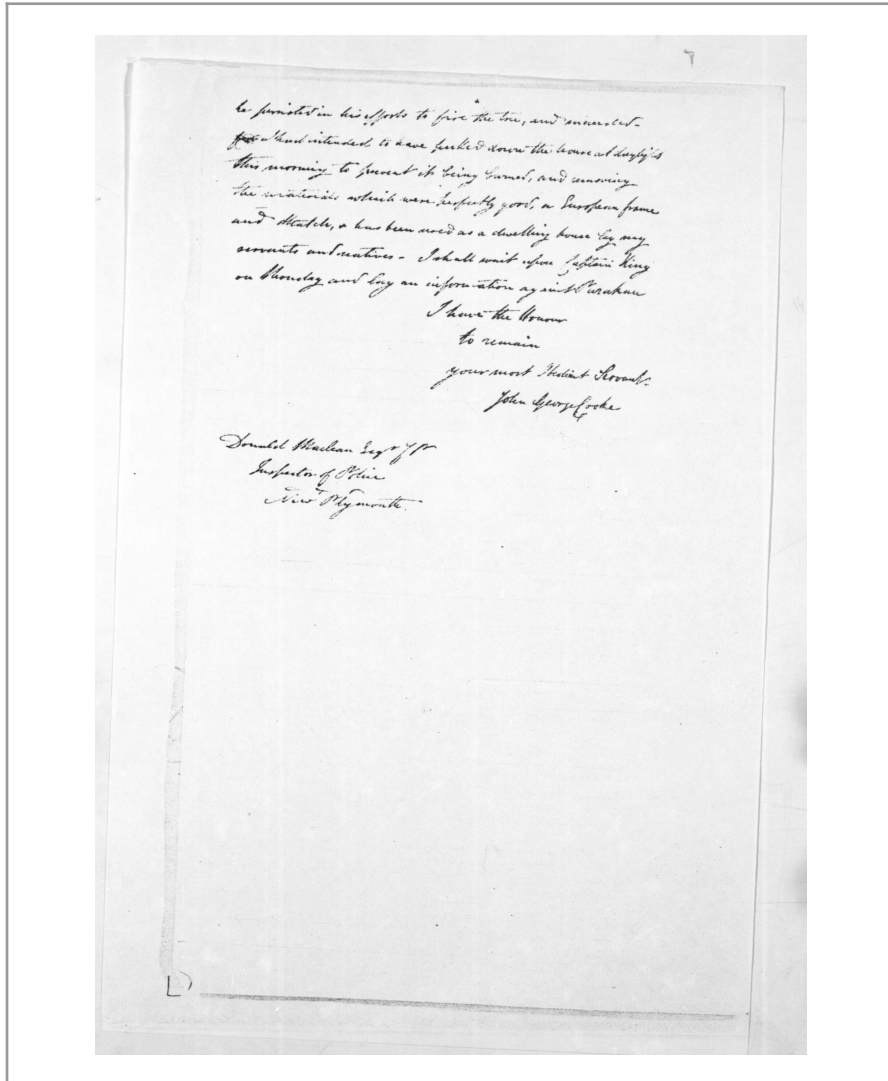 he persisted in his efforts to fire the tree, and succeeded -
I had intended to have pulled down the house at daylight
this morning to prevent it being burned, and removing
the materials which were perfectly good, a European frame
and thatch, & has been used as a dwelling house by my
servants and natives - I shall wait upon Captain King
on Monday and lay an information against
I have the Honour
to remain
your most Obedient Servant
John George Cooke
Donald Maclean Esqr
Inspector of Police
New Plymouth.